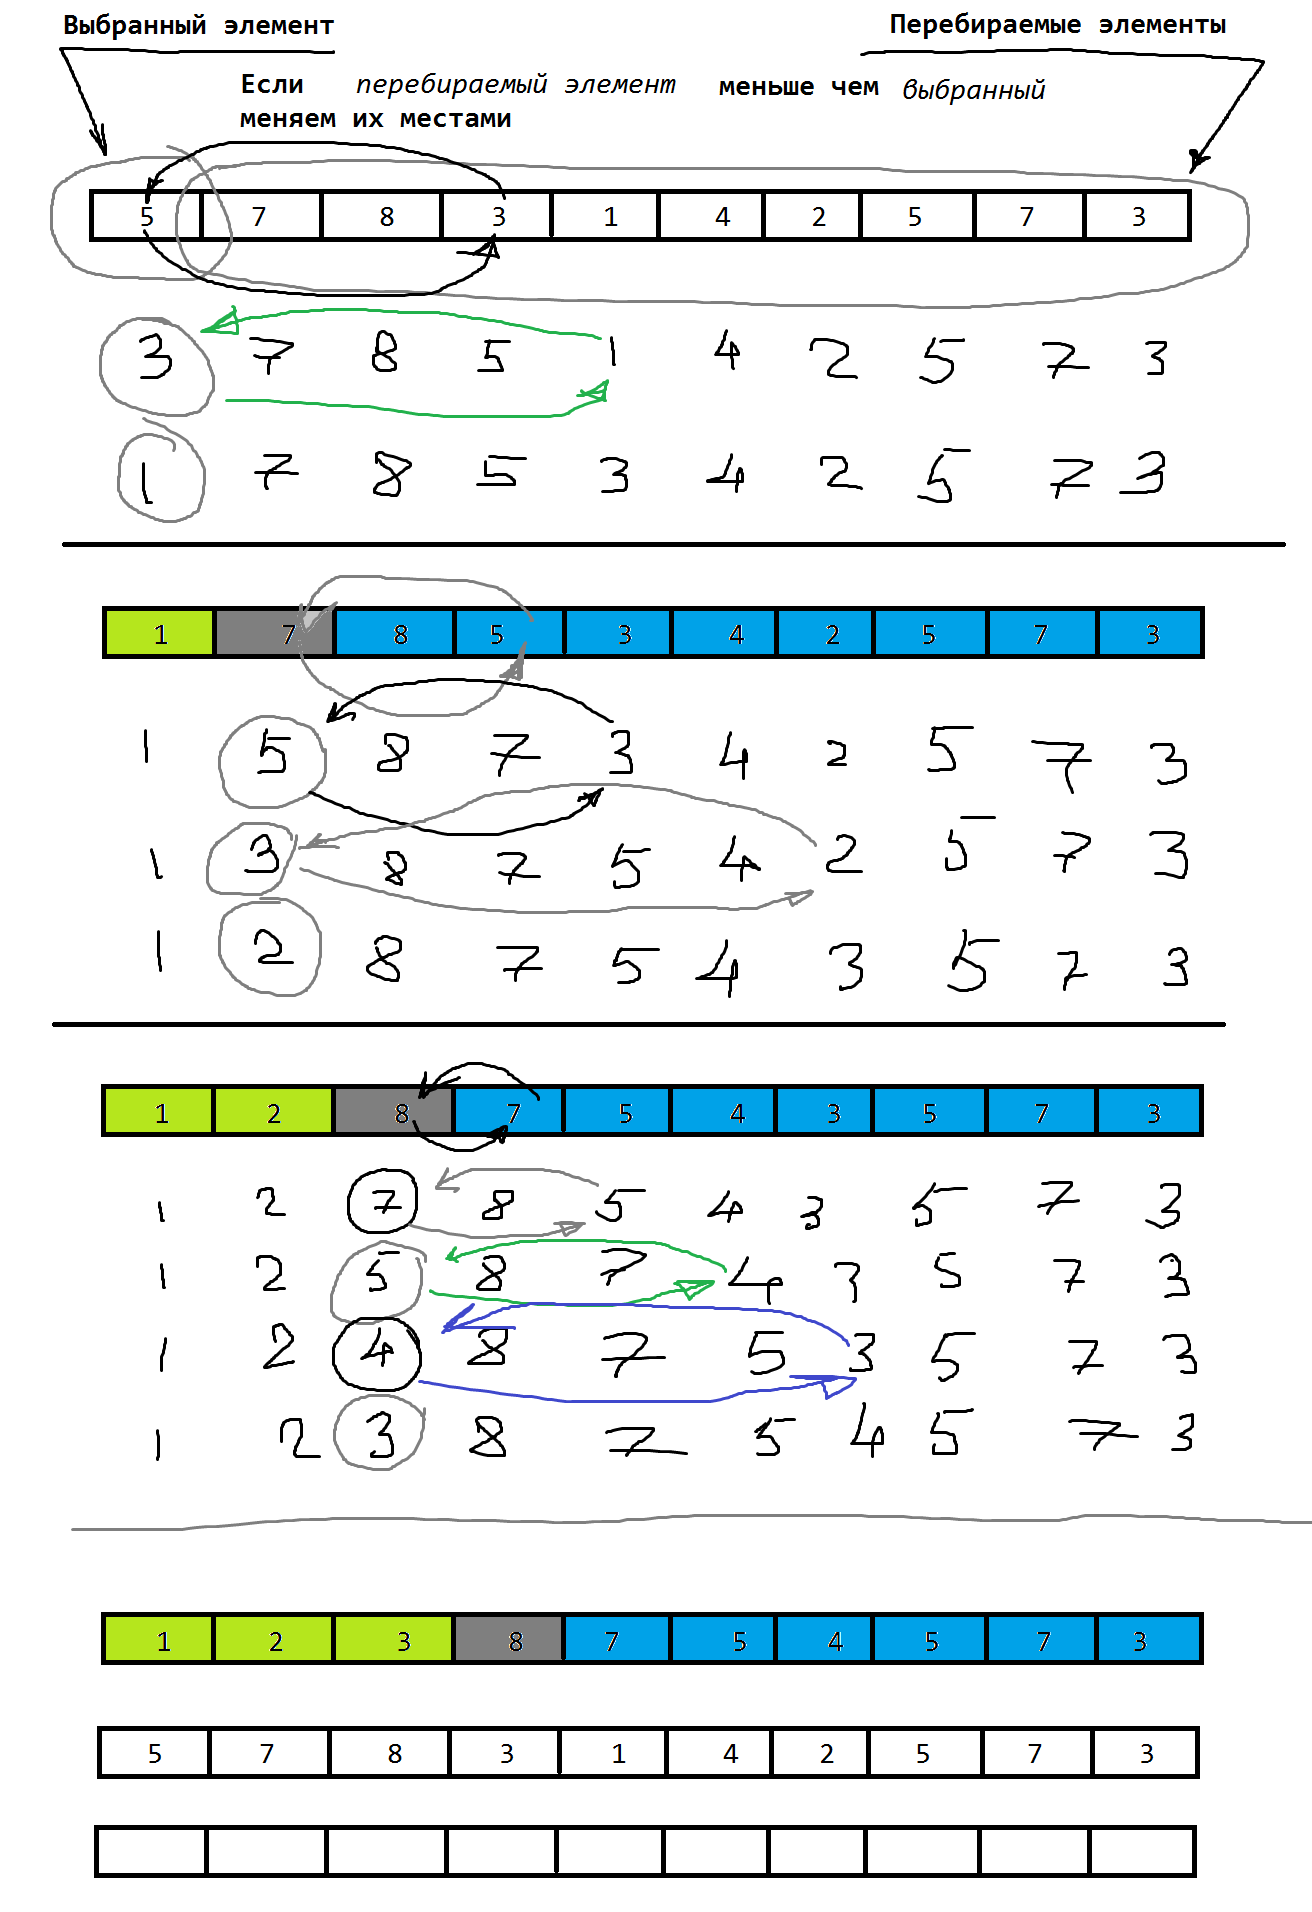 Выбранный элемент Перебираемые элементы
Если перебираемый элемент меньше чем выбранный
меняем их местами
5 7 8 3 1 4 2 5 7 3
3 7 8 5 1 4 2 5 7 3
1 7 8 5 3 4 2 5 7 3
1 7 8 5 3 4 2 5 7 3
1 5 8 7 3 4 2 5 7 3
1 3 8 7 5 4 2 5 7 3
1 2 8 7 5 4 3 5 7 3
1 2 8 7 5 4 3 5 7 3
1 2 7 8 5 4 3 5 7 3
1 2 5 8 7 4 3 5 7 3
1 2 4 8 7 5 3 5 7 3
1 2 3 8 7 5 4 5 7 3
1 2 3 8 7 5 4 5 7 3
5 7 8 3 1 4 2 5 7 3